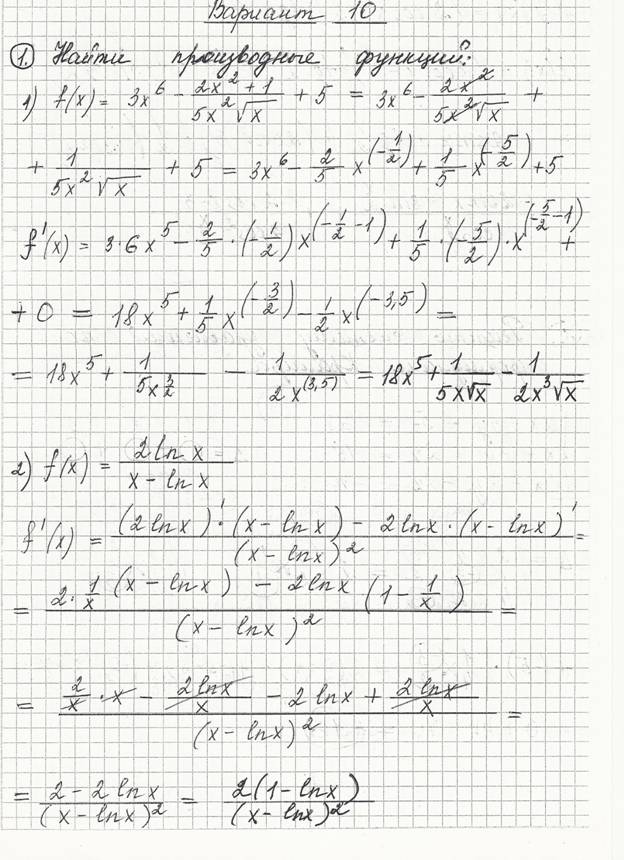 Вариант 10
1. Найти производные функций:
1) f(x) = 3x^6 - (2x^2+1)/(5x^2√x) + 5 = 3x^6 - 2x^2/(5x^2√x) +
+ 1/(5x^2√x) + 5 = 3x^6 - 2/5 x^(-1/2) + 1/5 x^(-5/2) + 5
f'(x) = 3·6x^5 - 2/5·(-1/2)x^(-1/2-1) + 1/5·(-5/2)·x^(-5/2-1) +
+ 0 = 18x^5 + 1/5 x^(-3/2) - 1/2 x^(-3,5) =
= 18x^5 + 1/(5x^(3/2)) - 1/(2x^(3,5)) = 18x^5 + 1/(5x√x) - 1/(2x^3√x)
2) f(x) = 2lnx/(x-lnx)
f'(x) = ((2lnx)'·(x-lnx) - 2lnx·(x-lnx)')/(x-lnx)^2 =
= (2·1/x(x-lnx) - 2lnx(1-1/x))/(x-lnx)^2 =
= (2/x·x - 2lnx/x - 2lnx + 2lnx/x)/(x-lnx)^2 =
= (2-2lnx)/(x-lnx)^2 = 2(1-lnx)/(x-lnx)^2